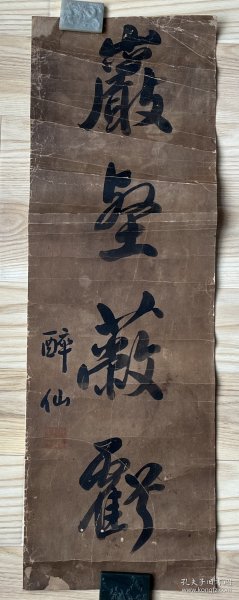 巖壑蔽虧
醉仙
孔夫子旧书网